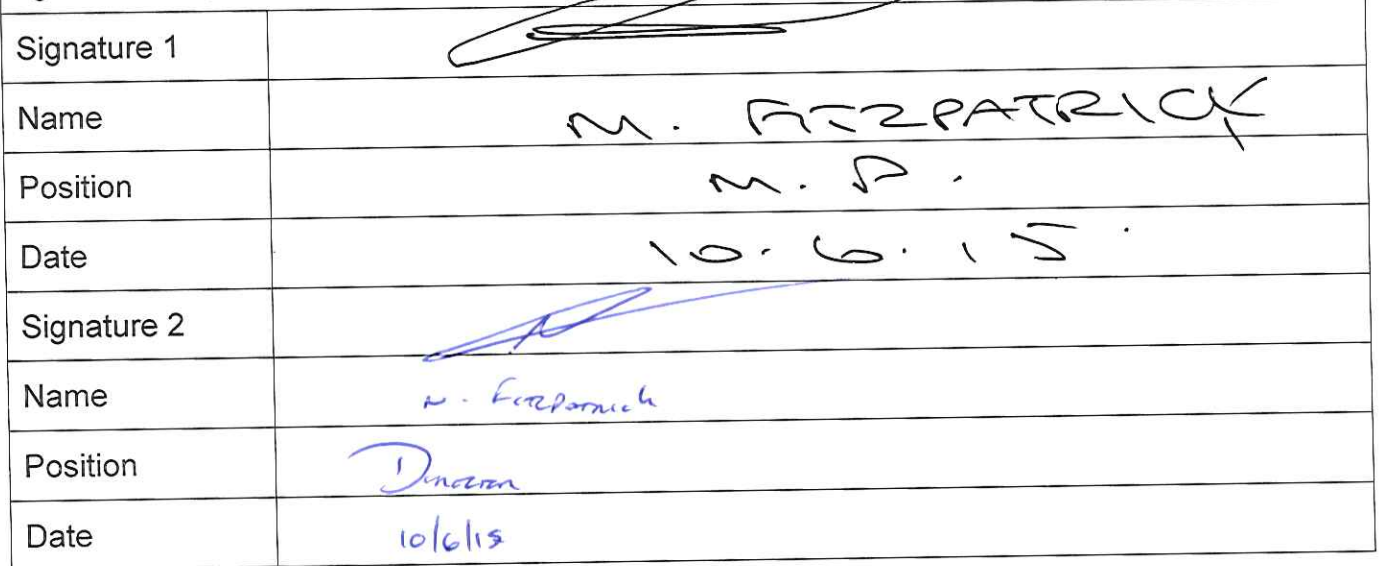 Signature 1
Name M. FITZPATRICK
Position M.D.
Date 10.6.15
Signature 2
Name N. Fitzpatrick
Position Director
Date 10/6/15